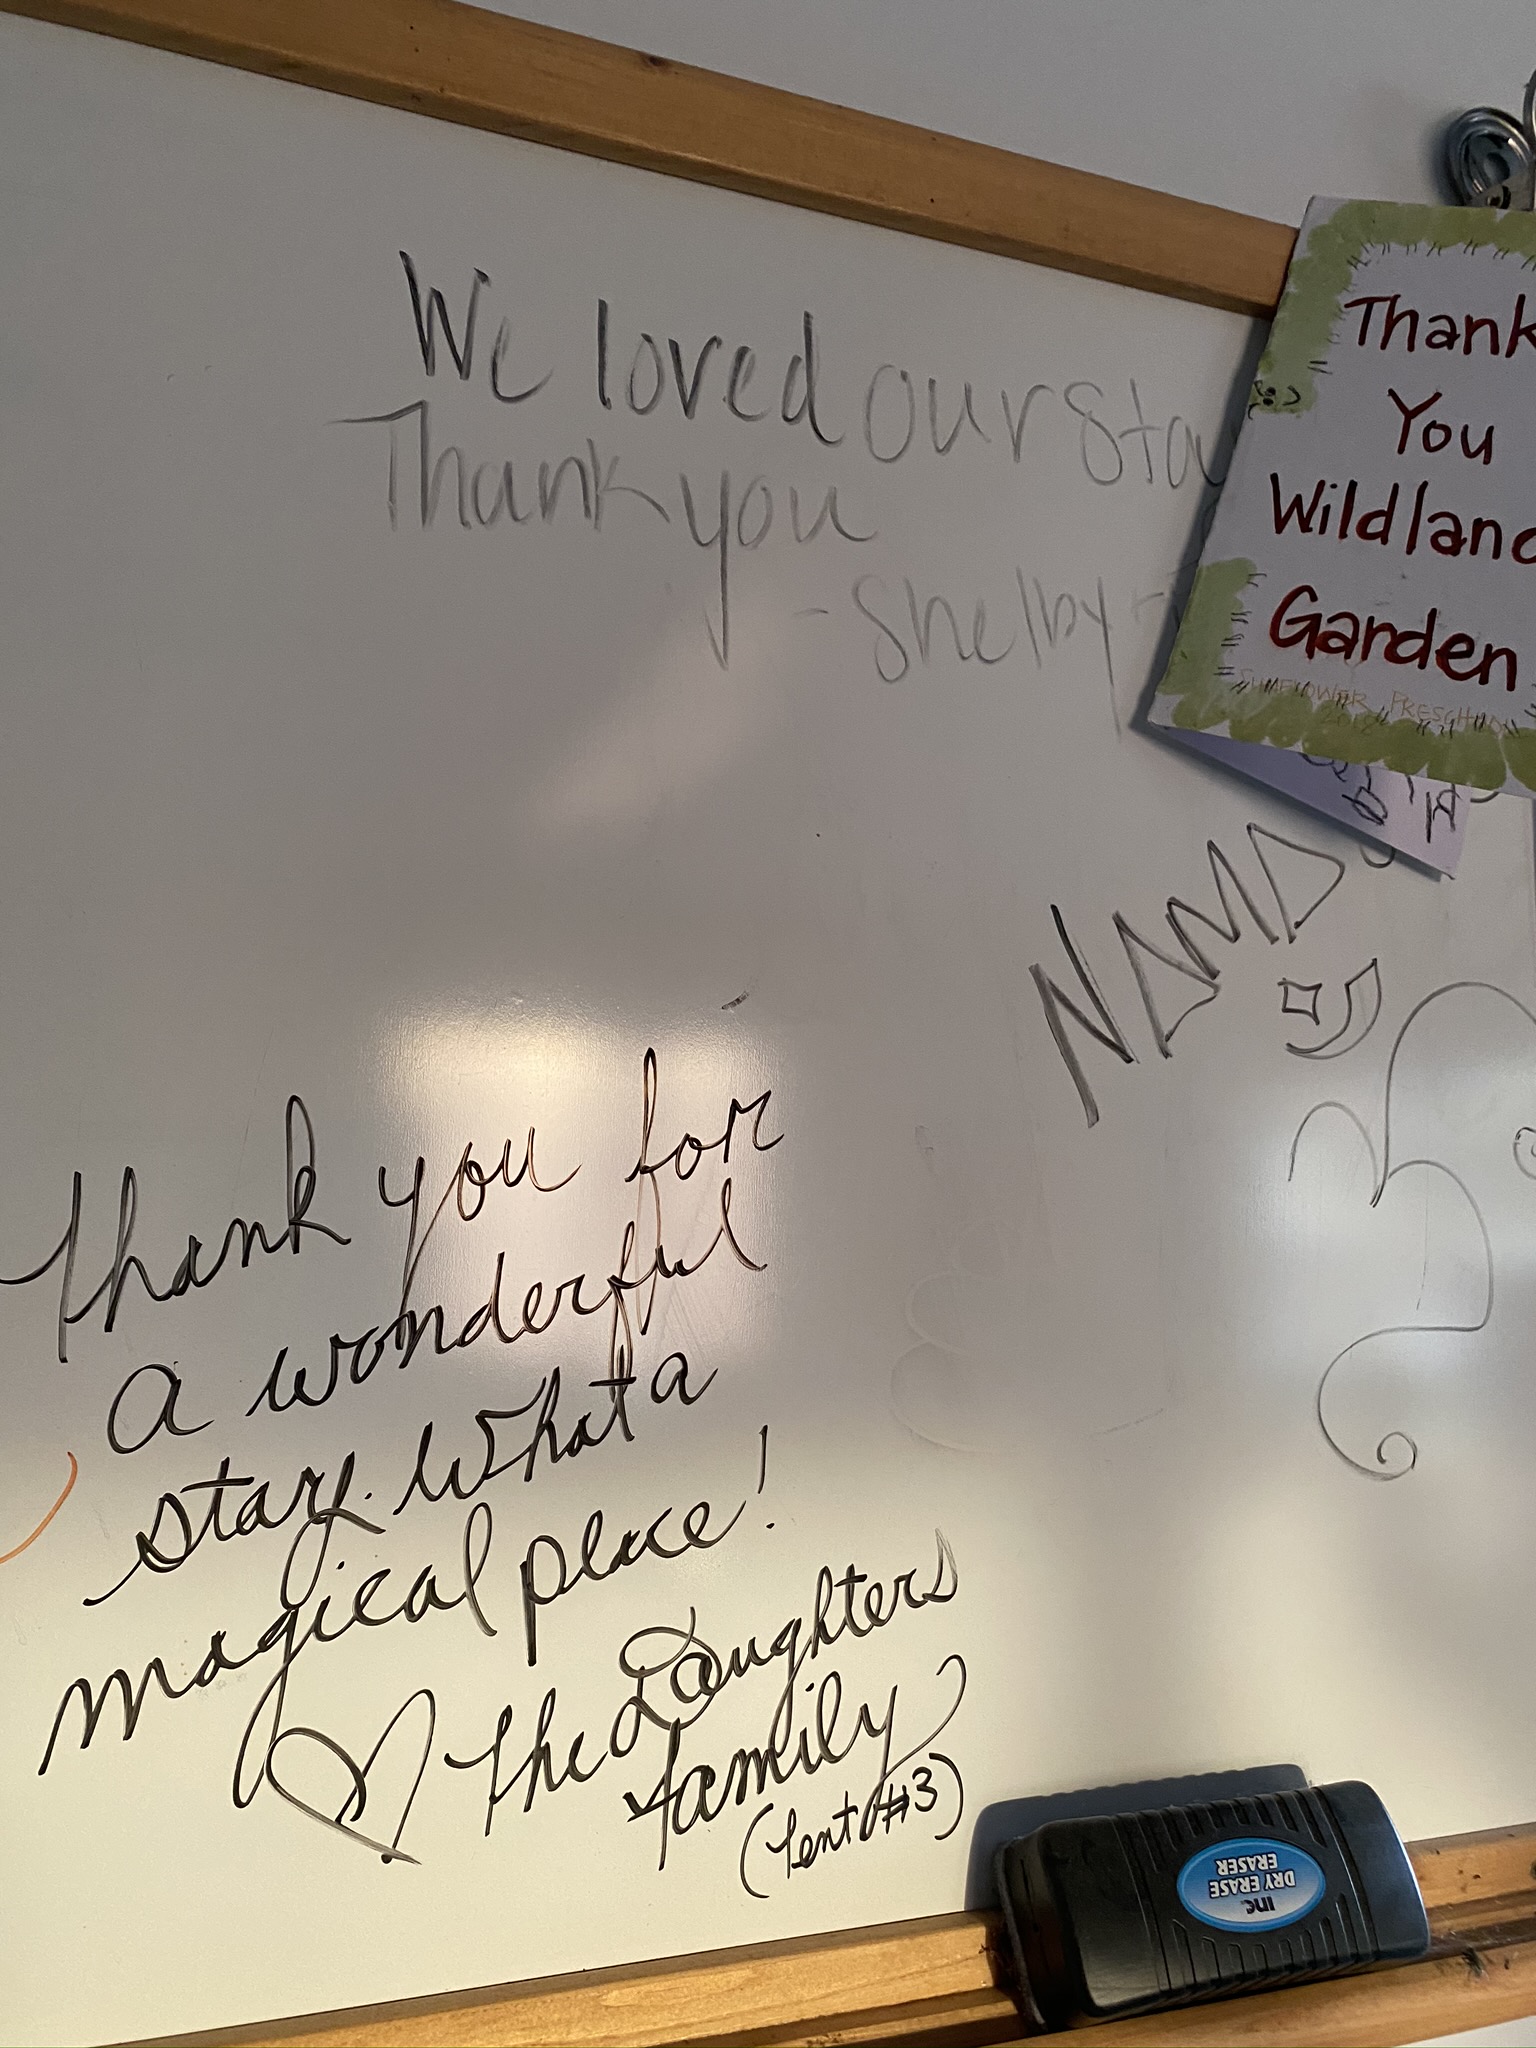 We loved our sta
Thank you
- Shelby +
Thank
You
Wildland
Garden
SUNFLOWER PRESCHOOL
2018
Thank you for
a wonderful
stay. What a
magical place!
The Daughters
family
(tent #3)
inc.
DRY ERASE
ERASER